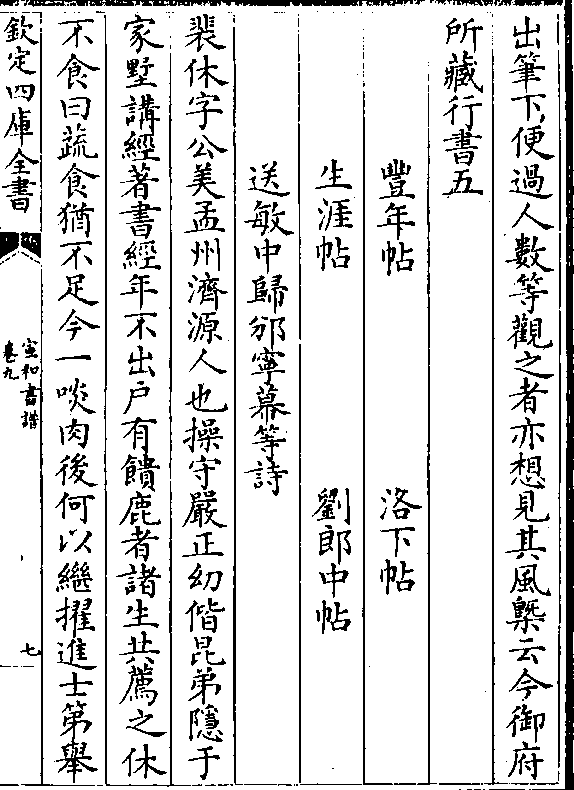 出筆下便過人數等觀之者亦想見其風槩云今御府
所藏行書五
豐年帖　洛下帖
生涯帖　劉郎中帖
送敏中歸邠寧幕等詩
裴休字公美孟州濟源人也操守嚴正幼偕昆弟隱于
家墅講經著書經年不出戶有饋鹿者諸生共薦之休
不食曰蔬食猶不足今一啖肉後何以繼擢進士第舉
欽定四庫全書
宣和書譜
卷九
七